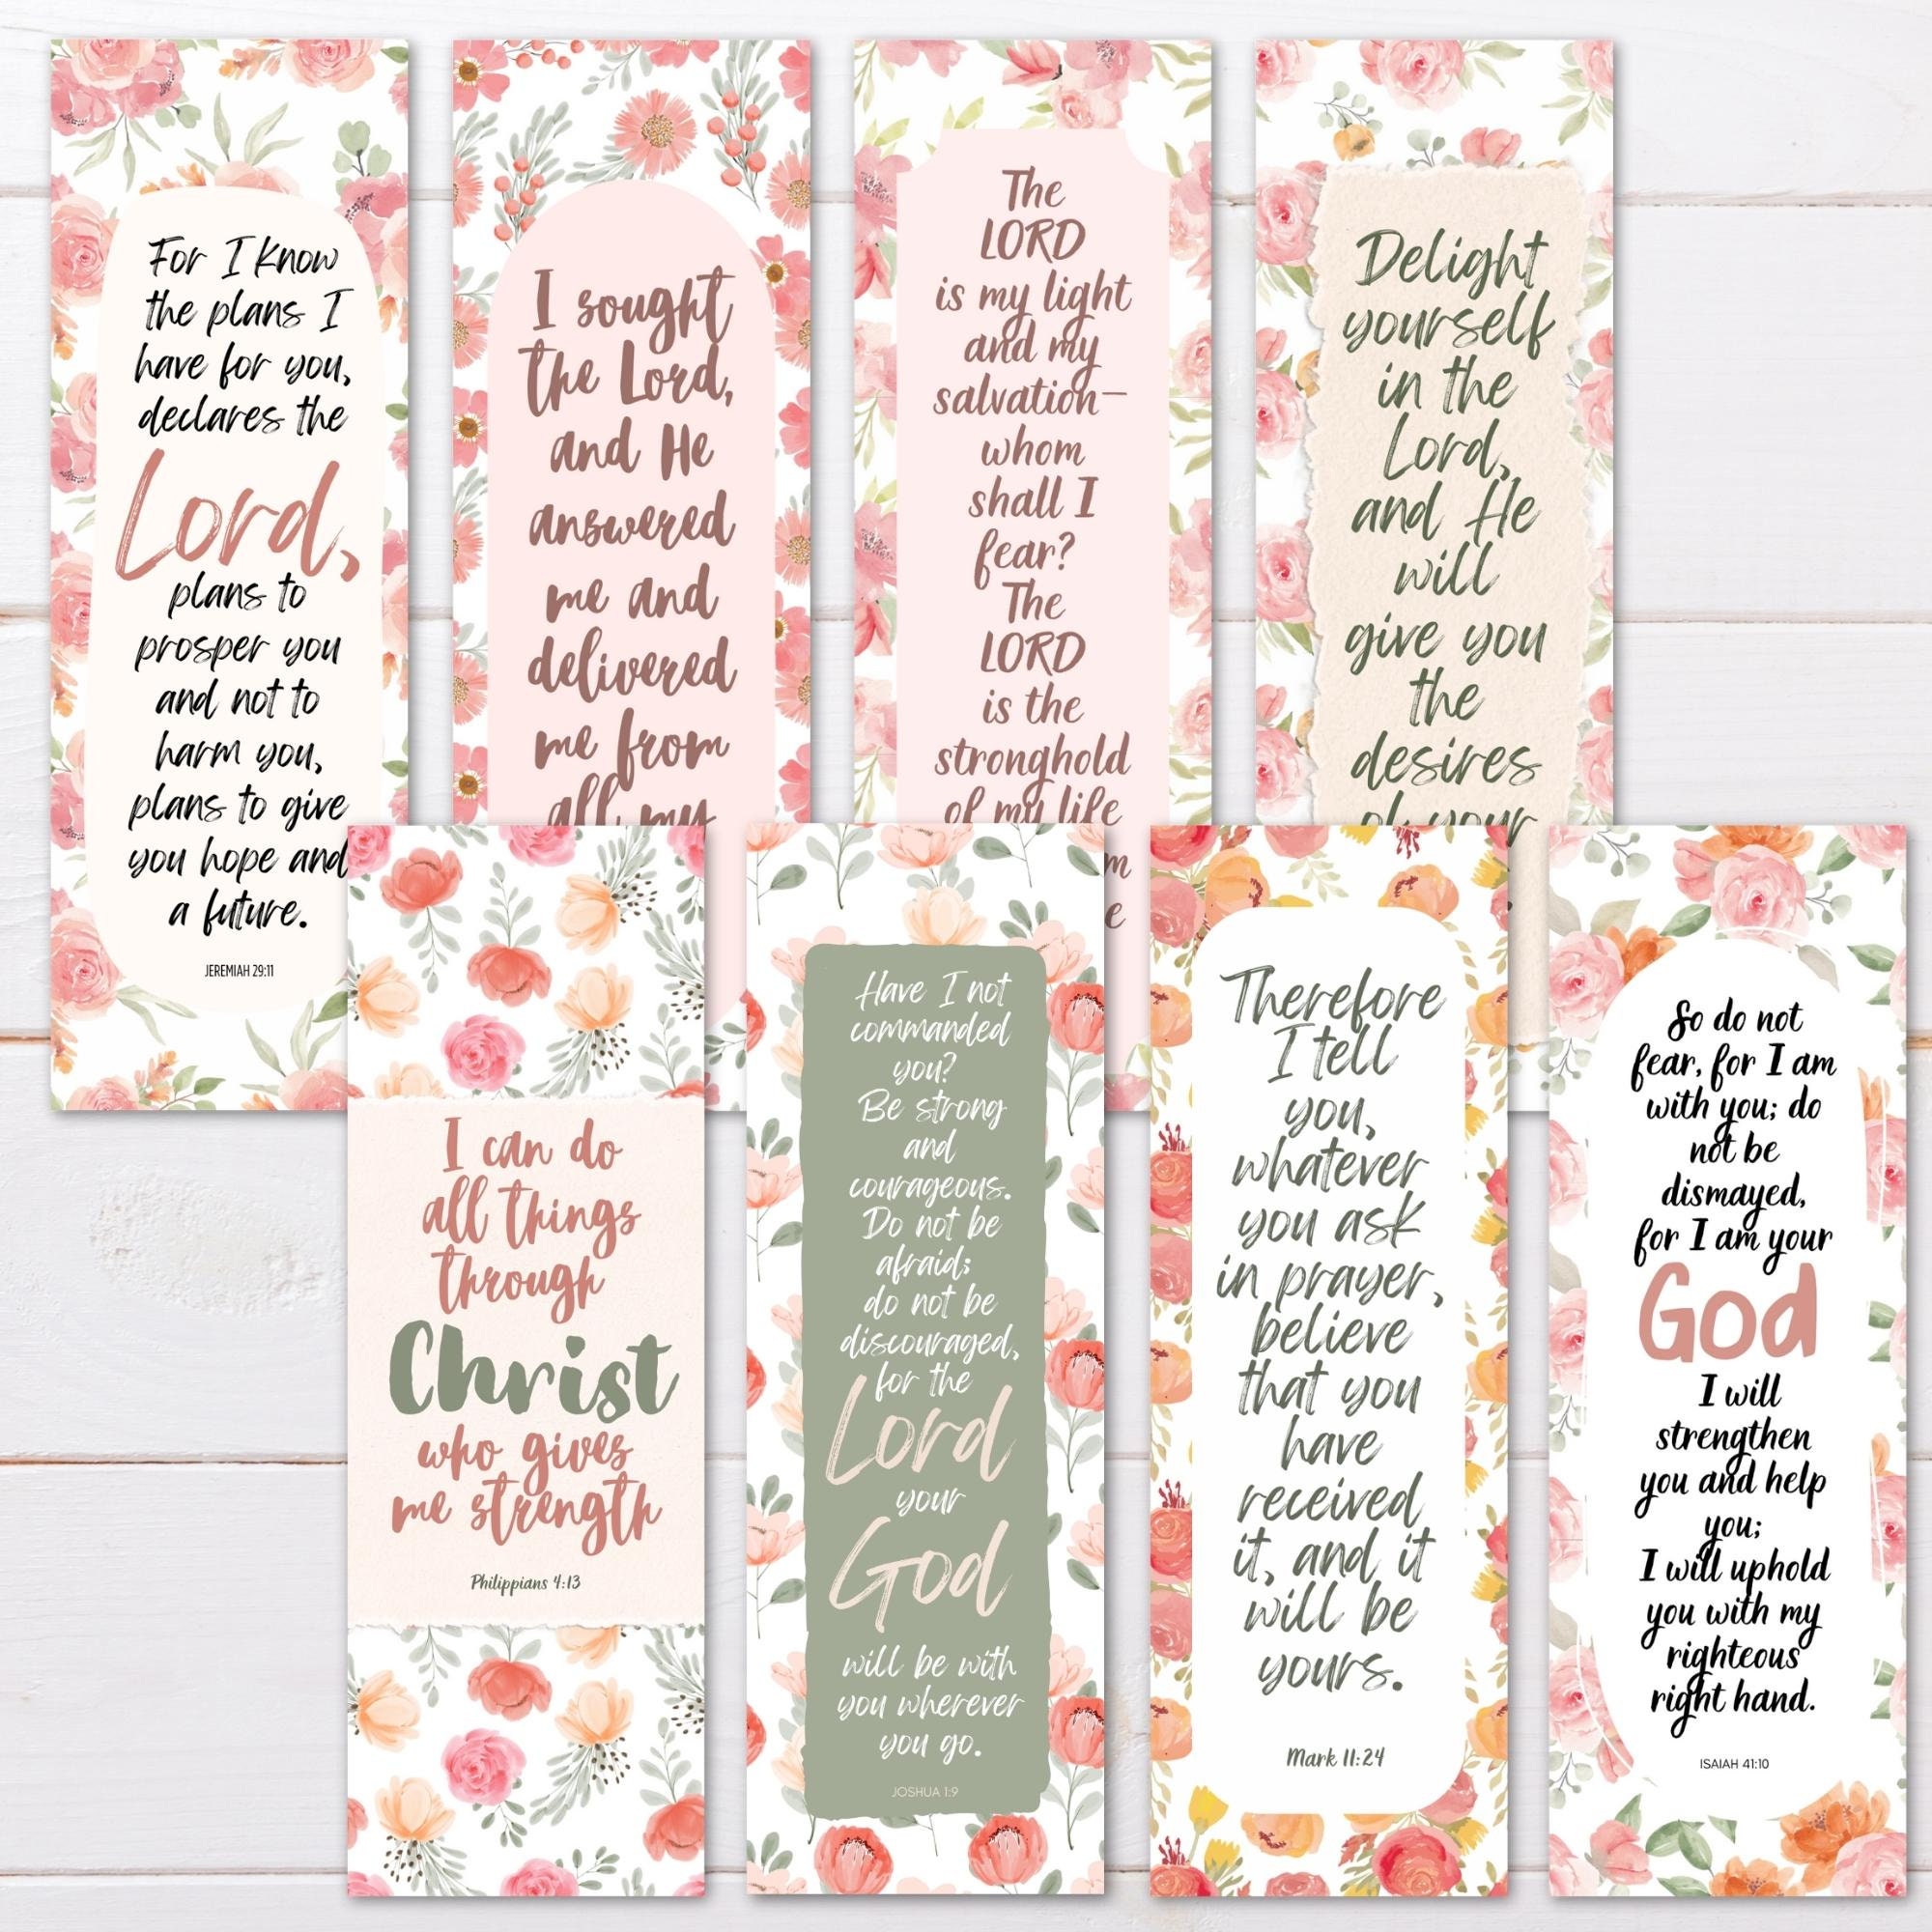 For I know
the plans I
have for you,
declares the
Lord,
plans to
prosper you
and not to
harm you,
plans to give
you hope and
a future.
JEREMIAH 29:11
I sought
the Lord,
and He
answered
me and
delivered
me from
all my
The
LORD
is my light
and my
salvation—
whom
shall I
fear?
The
LORD
is the
stronghold
of my life
Delight
yourself
in the
Lord,
and He
will
give you
the
desires
of your
I can do
all things
through
Christ
who gives
me strength
Philippians 4:13
Have I not
commanded
you?
Be strong
and
courageous.
Do not be
afraid;
do not be
discouraged,
for the
Lord
your
God
will be with
you wherever
you go.
JOSHUA 1:9
Therefore
I tell
you,
whatever
you ask
in prayer,
believe
that you
have
received
it, and it
will be
yours.
Mark 11:24
So do not
fear, for I am
with you; do
not be
dismayed,
for I am your
God
I will
strengthen
you and help
you;
I will uphold
you with my
righteous
right hand.
ISAIAH 41:10